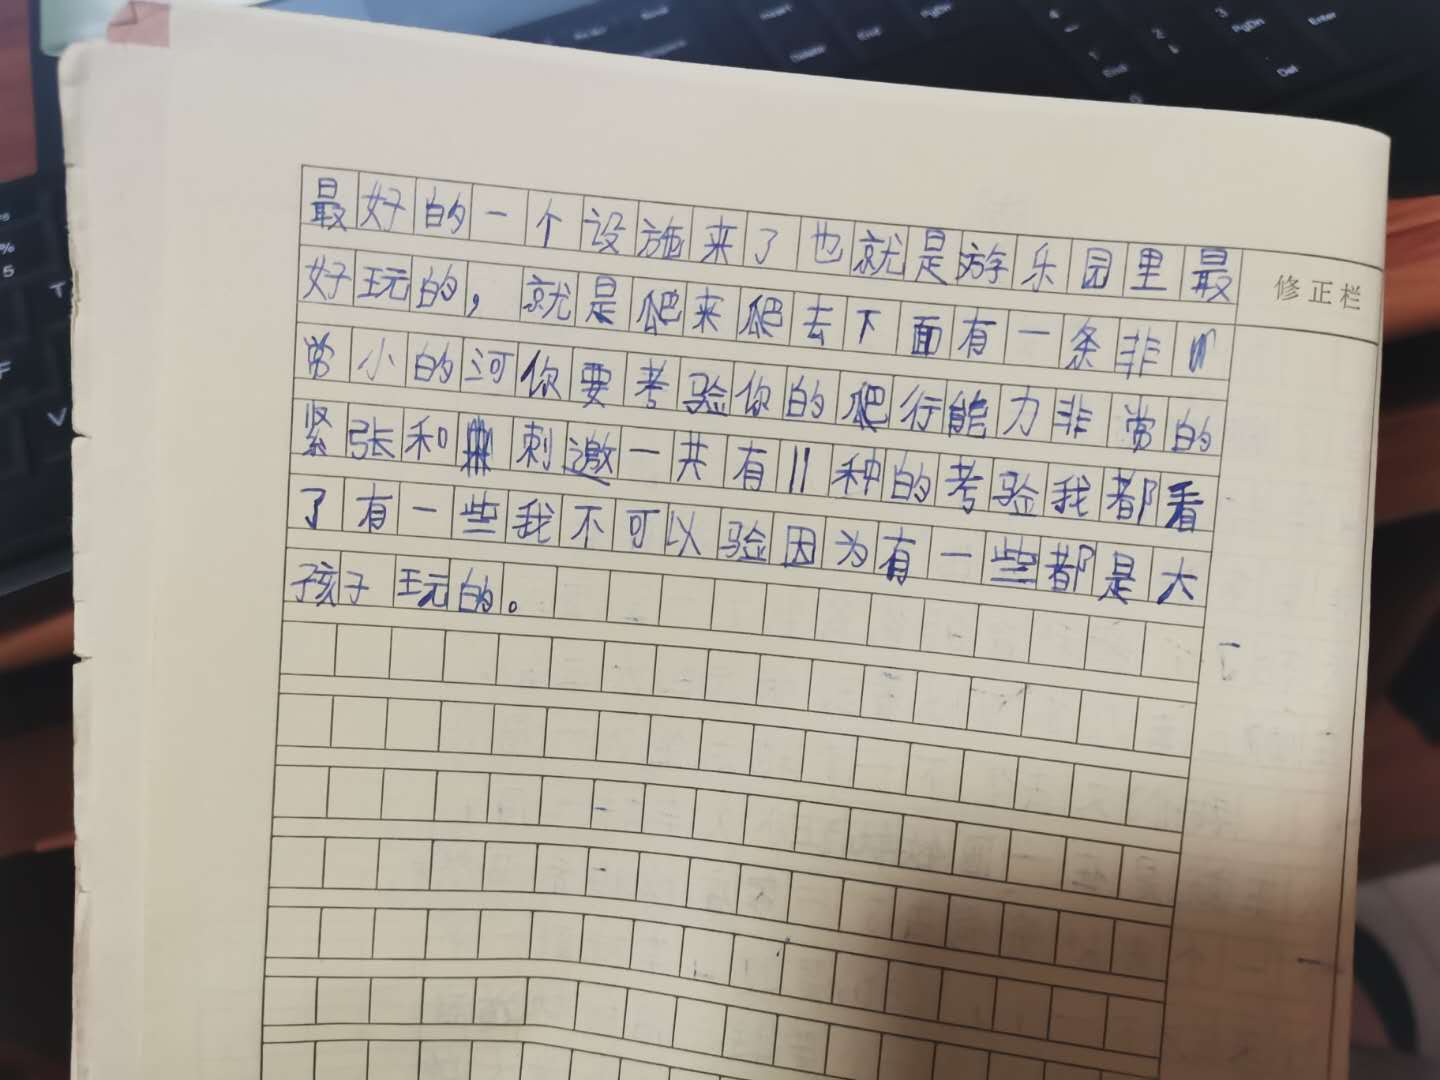 最好的一个设施来了也就是游乐园里最
好玩的，就是爬来爬去下面有一条非
常小的河你要考验你的爬行能力非常的
紧张和刺邀一共有11种的考验我都看
了有一些我不可以验因为有一些都是大
孩子玩的。
修正栏
Insert
PgUp
Delete
End
PgDn
4
1
End
2
3
PgDn
0
Enter
Del
F5
%
5
T
F
V